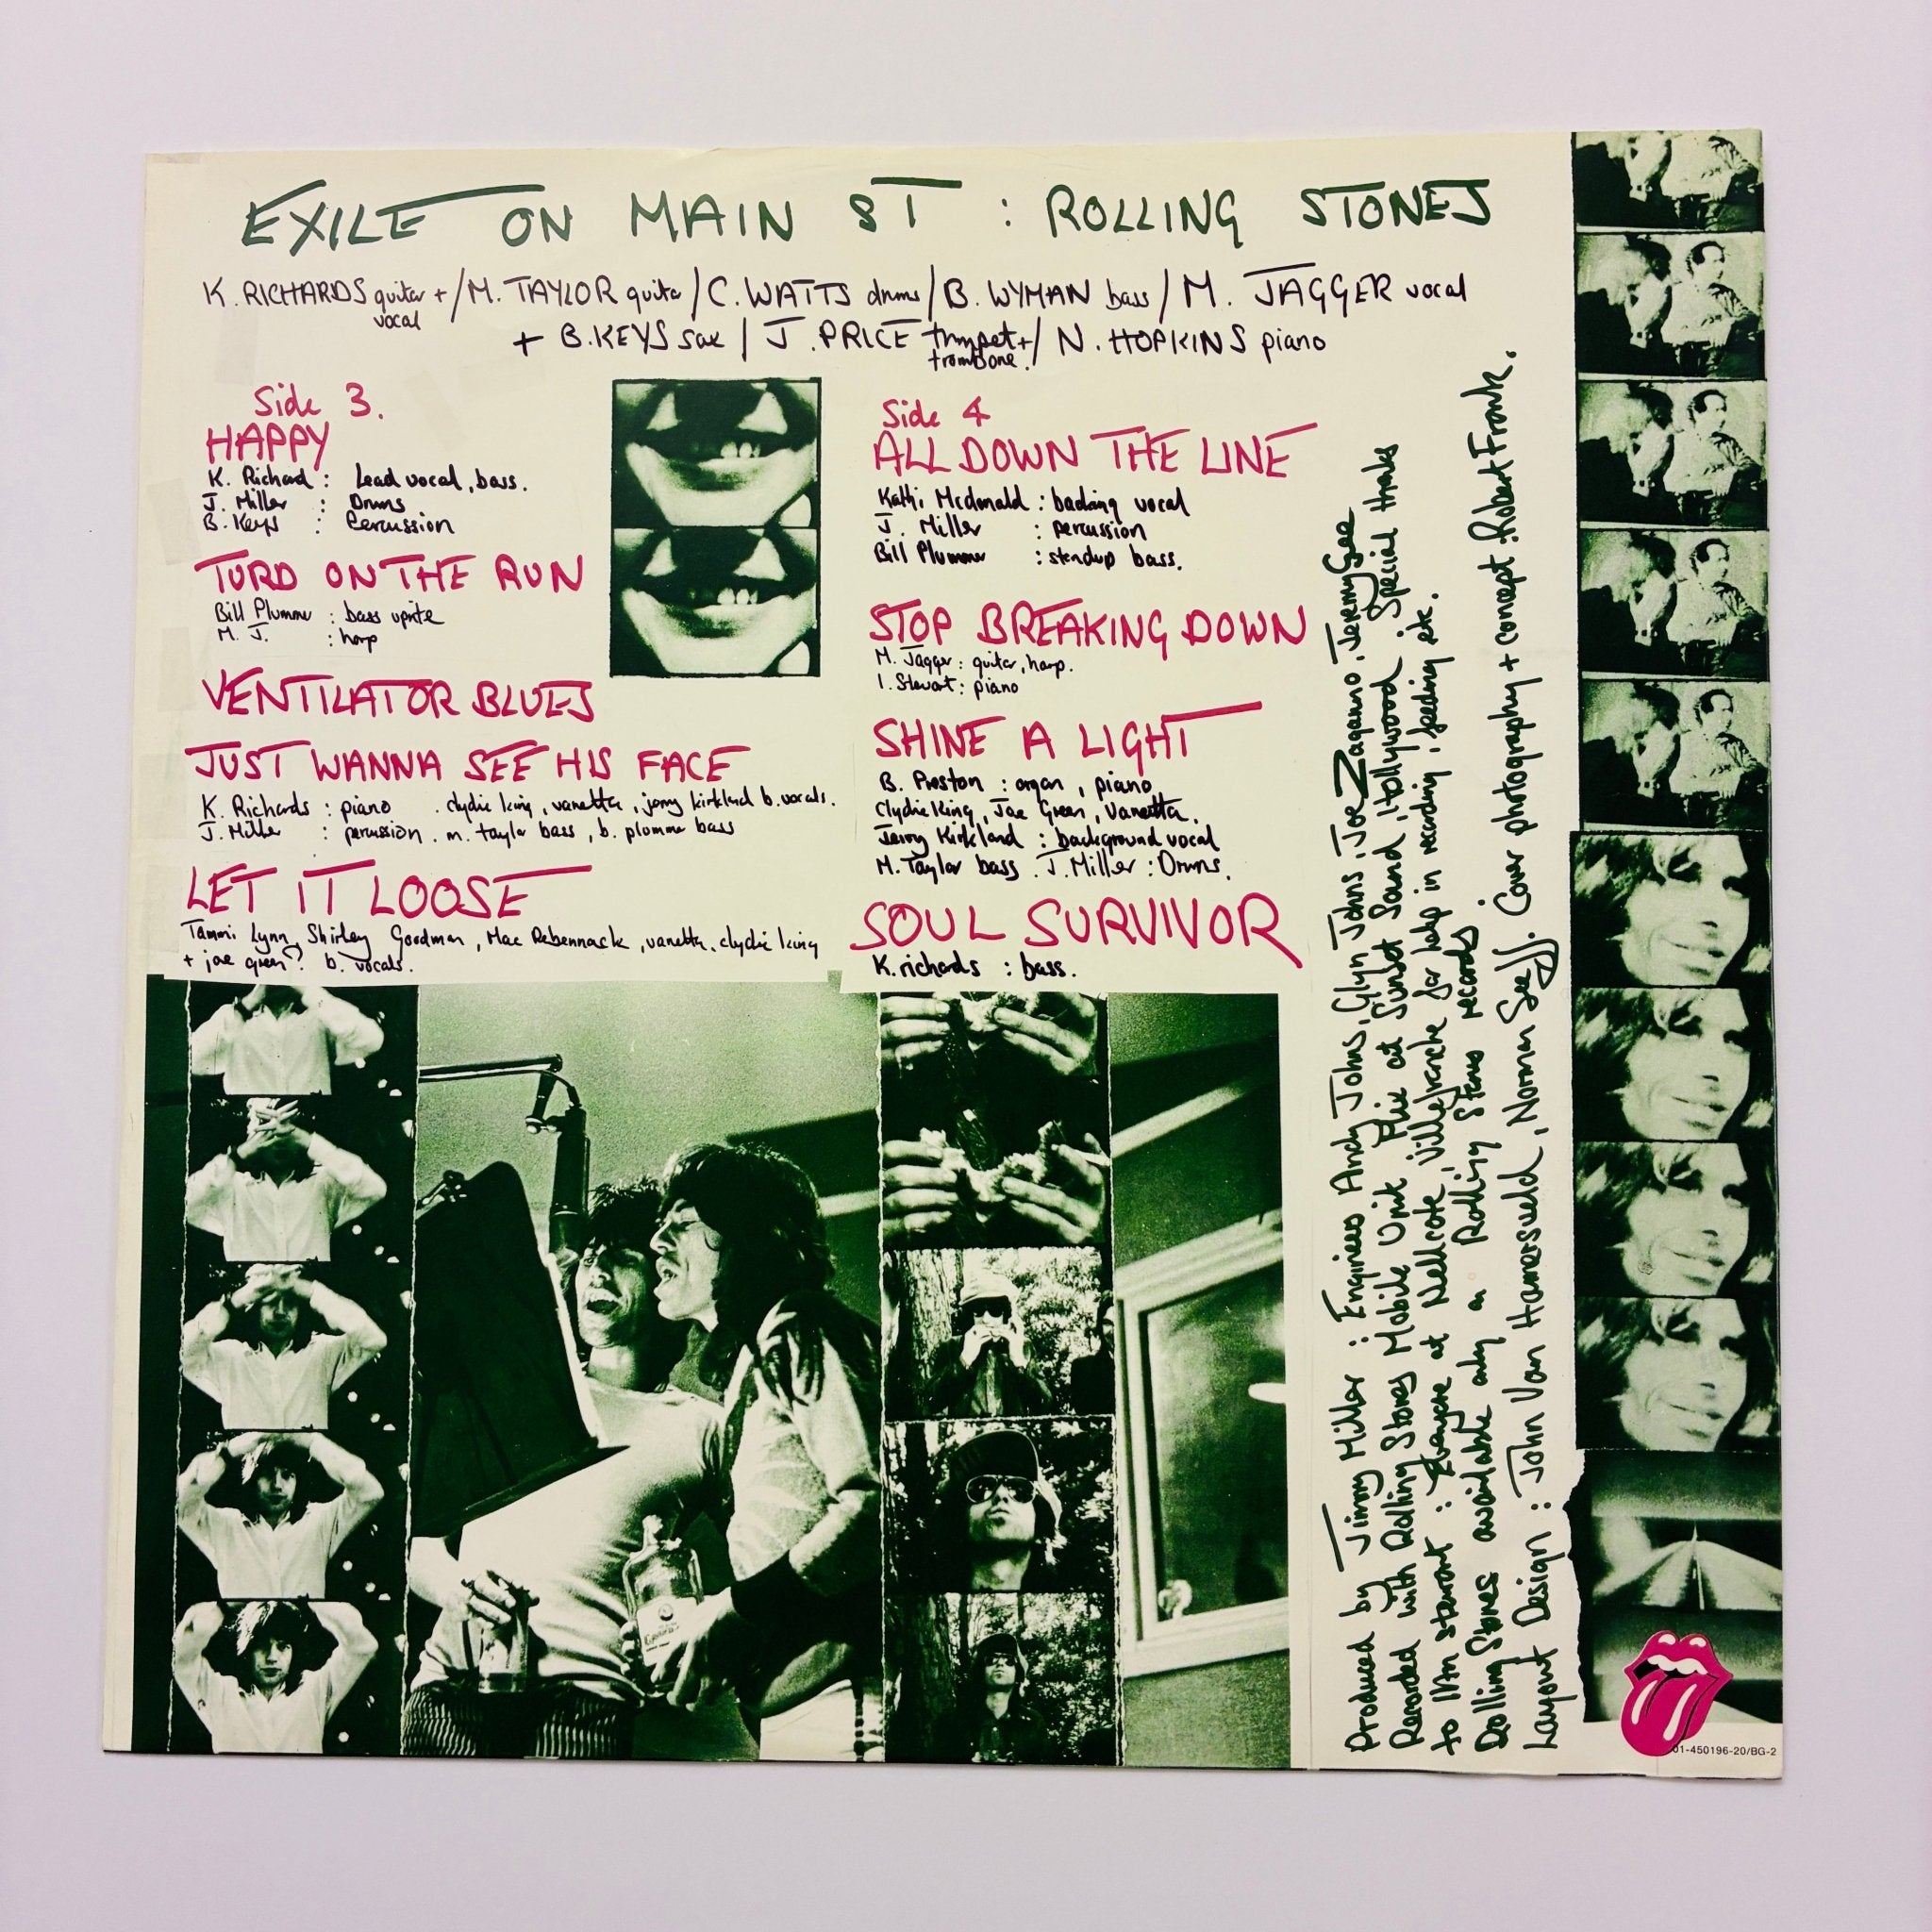 EXILE ON MAIN ST : ROLLING STONES
K. RICHARDS guitar + / M. TAYLOR guitar / C. WATTS drums / B. WYMAN bass / M. JAGGER vocal
vocal
+ B. KEYS sax / J. PRICE trumpet + / N. HOPKINS piano
trombone.
Side 3.
HAPPY
K. Richard : Lead vocal, bass.
J. Miller : Drums
B. Keys : Percussion
TURD ON THE RUN
Bill Plummer : bass uprite
M. J. : harp
VENTILATOR BLUES
JUST WANNA SEE HIS FACE
K. Richards : piano . clydie king, vanetta, jerry kirkland b. vocals.
J. Miller : percussion . m. taylor bass, b. plummer bass
LET IT LOOSE
Tammi Lynn, Shirley Goodman, Mac Rebennack, vanetta, clydie king
+ joe green? b. vocals.
Side 4
ALL DOWN THE LINE
Kathi Mcdonald : backing vocal
J. Miller : percussion
Bill Plummer : standup bass.
STOP BREAKING DOWN
M. Jagger : guitar, harp.
I. Stewart : piano
SHINE A LIGHT
B. Preston : organ, piano
Clydie King, Joe Green, Vanetta.
Jerry Kirkland : background vocal
M. Taylor bass . J. Miller : Drums.
SOUL SURVIVOR
K. richards : bass.
Produced by Jimmy Miller : Engineers Andy Johns, Glyn Johns, Joe Zaganno, Jeremy Gee
Recorded with Rolling Stones Mobile Unit + Mix at Sunset Sound, Hollywood. Special thanks
to Ian stewart : Everyone at Nellcote, Villefranche for help in recording, feeding etc.
Rolling Stones available only on Rolling Stones records.
Layout Design : John Van Hamersveld, Norman Seeff. Cover photography + concept : Robert Frank.
01-450196-20/BG-2